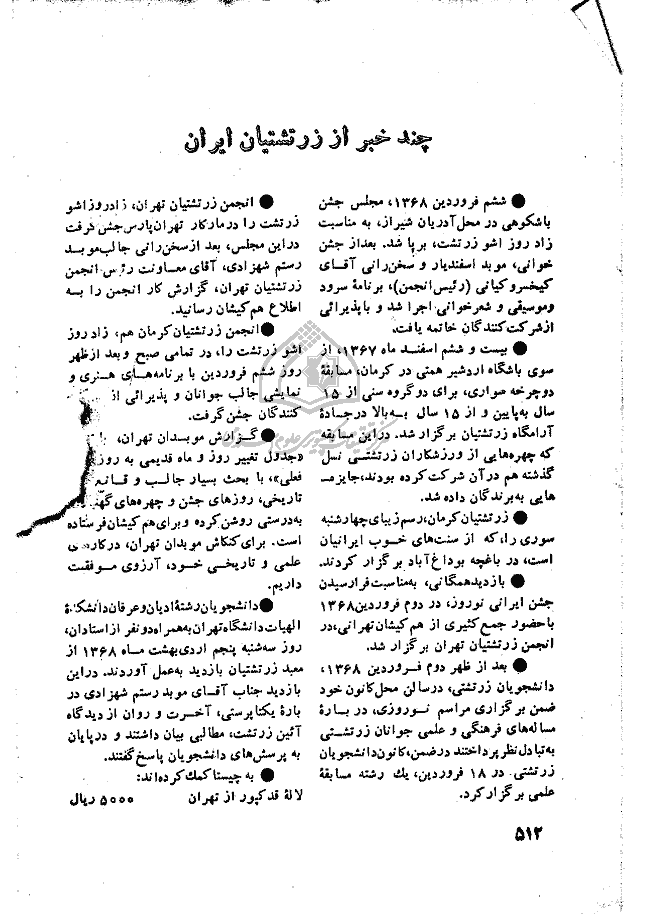 چند خبر از زرتشتیان ایران
● ششم فروردین ۱۳۶۸، مجلس جشن
باشکوهی در محل آدریان شیراز، به مناسبت
زاد روز اشو زرتشت، برپا شد. بعداز جشن
خوانی، موبد اسفندیار و سخن‌رانی آقای
کیخسرو کیانی (رئیس انجمن)، برنامهٔ سرود
وموسیقی و شعرخوانی اجرا شد و باپذیرائی
ازشرکت‌کنندگان خاتمه یافت.
● بیست و ششم اسفند ماه ۱۳۶۷، از
سوی باشگاه اردشیر همتی در کرمان، مسابقهٔ
دوچرخه سواری، برای دوگروه سنی از ۱۵
سال به‌پایین و از ۱۵ سال به‌بالا درجادهٔ
آرامگاه زرتشتیان برگزار شد. دراین مسابقه
که چهره‌هایی از ورزشکاران زرتشتی نسل
گذشته هم‌درآن شرکت کرده بودند، جایزه‌ـ
هایی به‌برندگان داده شد.
● زرتشتیان کرمان، رسم زیبای چهارشنبه
سوری را، که از سنت‌های خوب ایرانیان
است، در باغچه بوداغ‌آباد برگزار کردند.
● بازدیدهمگانی، به‌مناسبت فرارسیدن
جشن ایرانی نوروز، در دوم فروردین ۱۳۶۸
باحضور جمع کثیری از هم‌کیشان تهرانی، در
انجمن زرتشتیان تهران برگزار شد.
● بعد از ظهر دوم فروردین ۱۳۶۸،
دانشجویان زرتشتی، درسالن محل کانون خود
ضمن برگزاری مراسم نوروزی، در بارهٔ
مساله‌های فرهنگی و علمی جوانان زرتشتی
به‌تبادل نظر پرداختند درضمن، کانون دانشجویان
زرتشتی در ۱۸ فروردین، یك رشته مسابقهٔ
علمی برگزار کرد.
● انجمن زرتشتیان تهران، زادروز اشو
زرتشت را درمارکار تهران‌پارس جشن گرفت
دراین مجلس، بعد ازسخن‌رانی جالب موبد
رستم شهزادی، آقای معاونت رئیس انجمن
زرتشتیان تهران، گزارش کار انجمن را به
اطلاع هم‌کیشان رسانید.
● انجمن زرتشتیان کرمان هم، زاد روز
اشو زرتشت را، در تمامی صبح و بعد ازظهر
روز ششم فروردین با برنامه‌های هنری و
نمایشی جالب جوانان و پذیرائی از
کنندگان جشن گرفت.
● گزارش موبدان تهران،
«جدول تغییر روز و ماه قدیمی به روز
فعلی»، با بحث بسیار جالب و
تاریخی، روزهای جشن و چهره‌های
به‌درستی روشن کرده و برای هم‌کیشان فرستاده
است. برای کنکاش موبدان تهران، درکارهای
علمی و تاریخی خود، آرزوی موفقیت
داریم.
● دانشجویان رشتهٔ ادیان و عرفان دانشکدهٔ
الهیات دانشگاه تهران به‌همراه دو نفر از استادان،
روز سه‌شنبه پنجم اردی‌بهشت ماه ۱۳۶۸ از
معبد زرتشتیان بازدید به‌عمل آوردند. دراین
بازدید جناب آقای موبد رستم شهزادی در
بارهٔ یکتاپرستی، آخرت و روان از دیدگاه
آئین زرتشت، مطالبی بیان داشتند و درپایان
به پرسش‌های دانشجویان پاسخ گفتند.
● به چیستا کمك کرده‌اند:
لالهٔ قدکپور از تهران ۵۰۰۰ ریال
۵۱۲